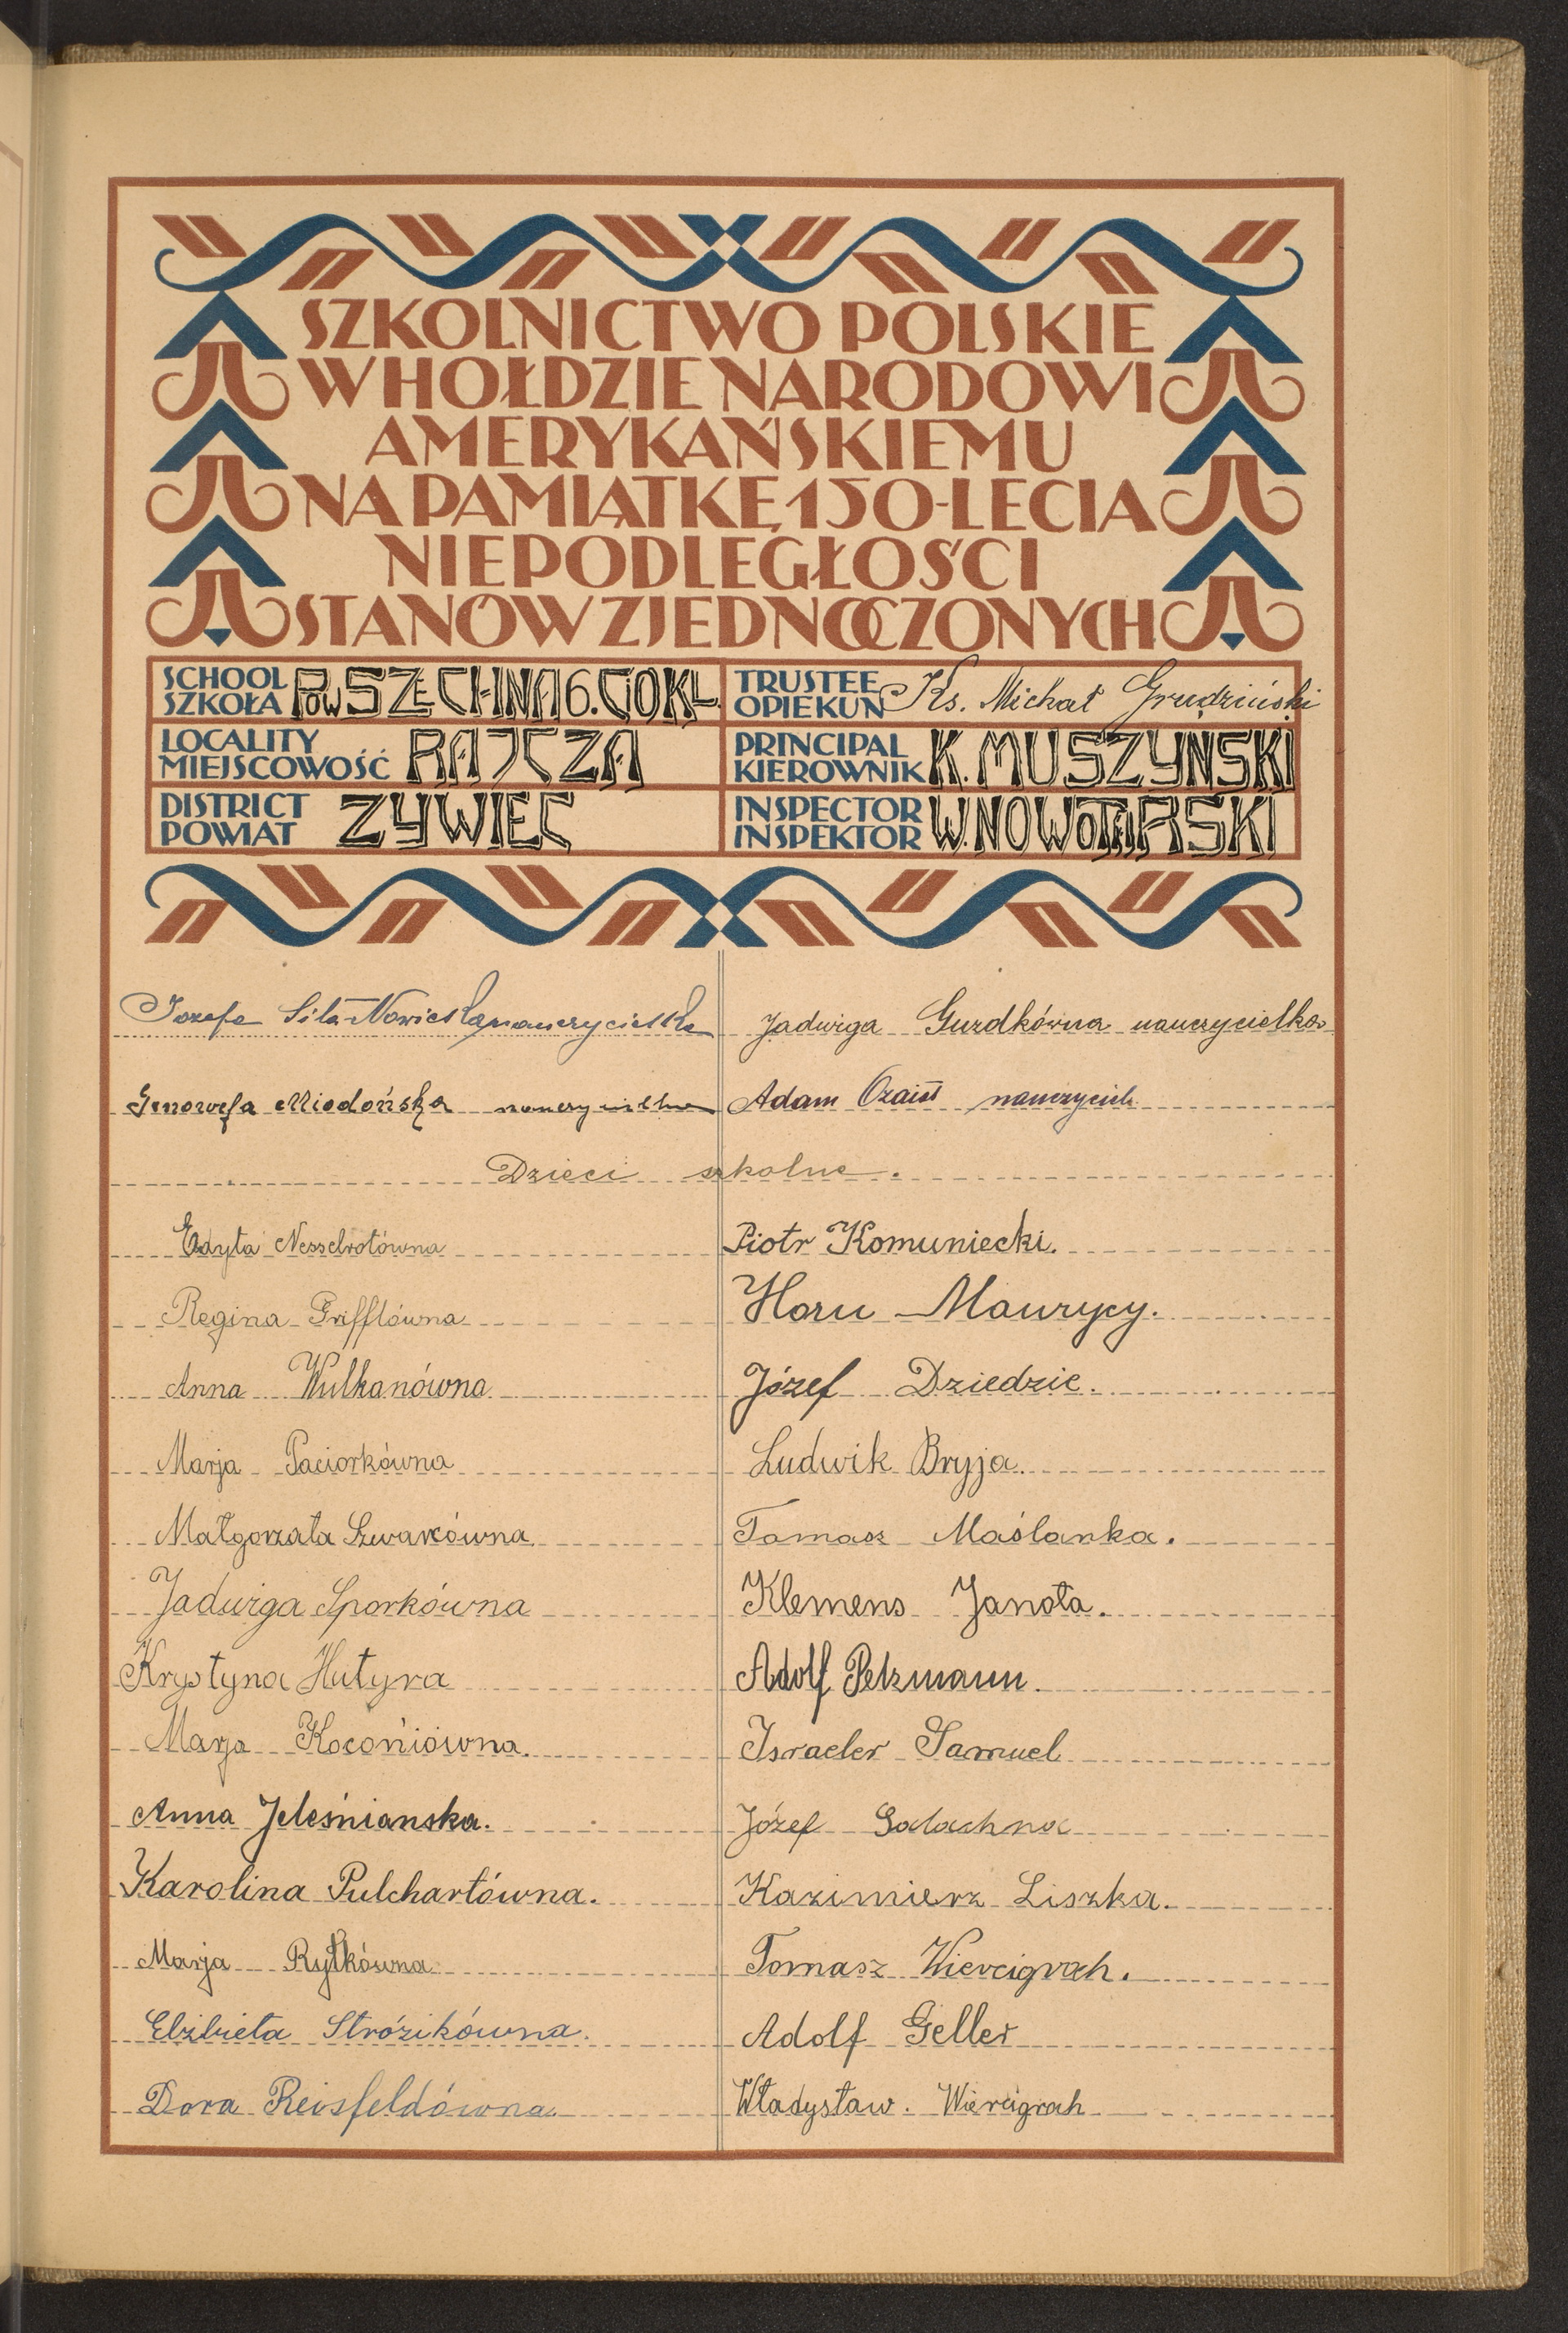 SZKOLNICTWO POLSKIE
W HOŁDZIE NARODOWI
AMERYKAŃSKIEMU
NA PAMIĄTKĘ 150-LECIA
NIEPODLEGŁOŚCI
STANÓW ZJEDNOCZONYCH
SCHOOL
SZKOŁA POWSZECHNA 6. GOKL.
TRUSTEE
OPIEKUN Ks. Michał Grudziński
LOCALITY
MIEJSCOWOŚĆ RAJCZA
PRINCIPAL
KIEROWNIK K. MUSZYŃSKI
DISTRICT
POWIAT ZYWIEC
INSPECTOR
INSPEKTOR W. NOWOTARSKI
Józefa Siła-Nowicka nauczycielka
Jadwiga Gurdkówna nauczycielka
Genowefa Miodońska nauczycielka
Adam nauczyciel
Dzieci szkolne.
Edyta Nesselrotówna
Piotr Komuniecki.
Regina Grifflówna
Horn Maurycy.
Anna Wulkanówna
Józef Dziedzic.
Marja Paciorkówna
Ludwik Bryja.
Małgorzata Szwarcówna
Tomasz Maślanka.
Jadwiga Sporkówna
Klemens Janota.
Krystyna Hutyra
Adolf Pelzmann.
Marja Kocońiówna.
Israeler Samuel
Anna Jeleśnianska.
Józef Salachna
Karolina Pulchartówna.
Kazimierz Liszka.
Marja Ryłkówna
Tomasz Wiercigroch.
Elżbieta Stróżikówna.
Adolf Geller
Dora Reisfeldówna.
Władysław. Wiercigroch